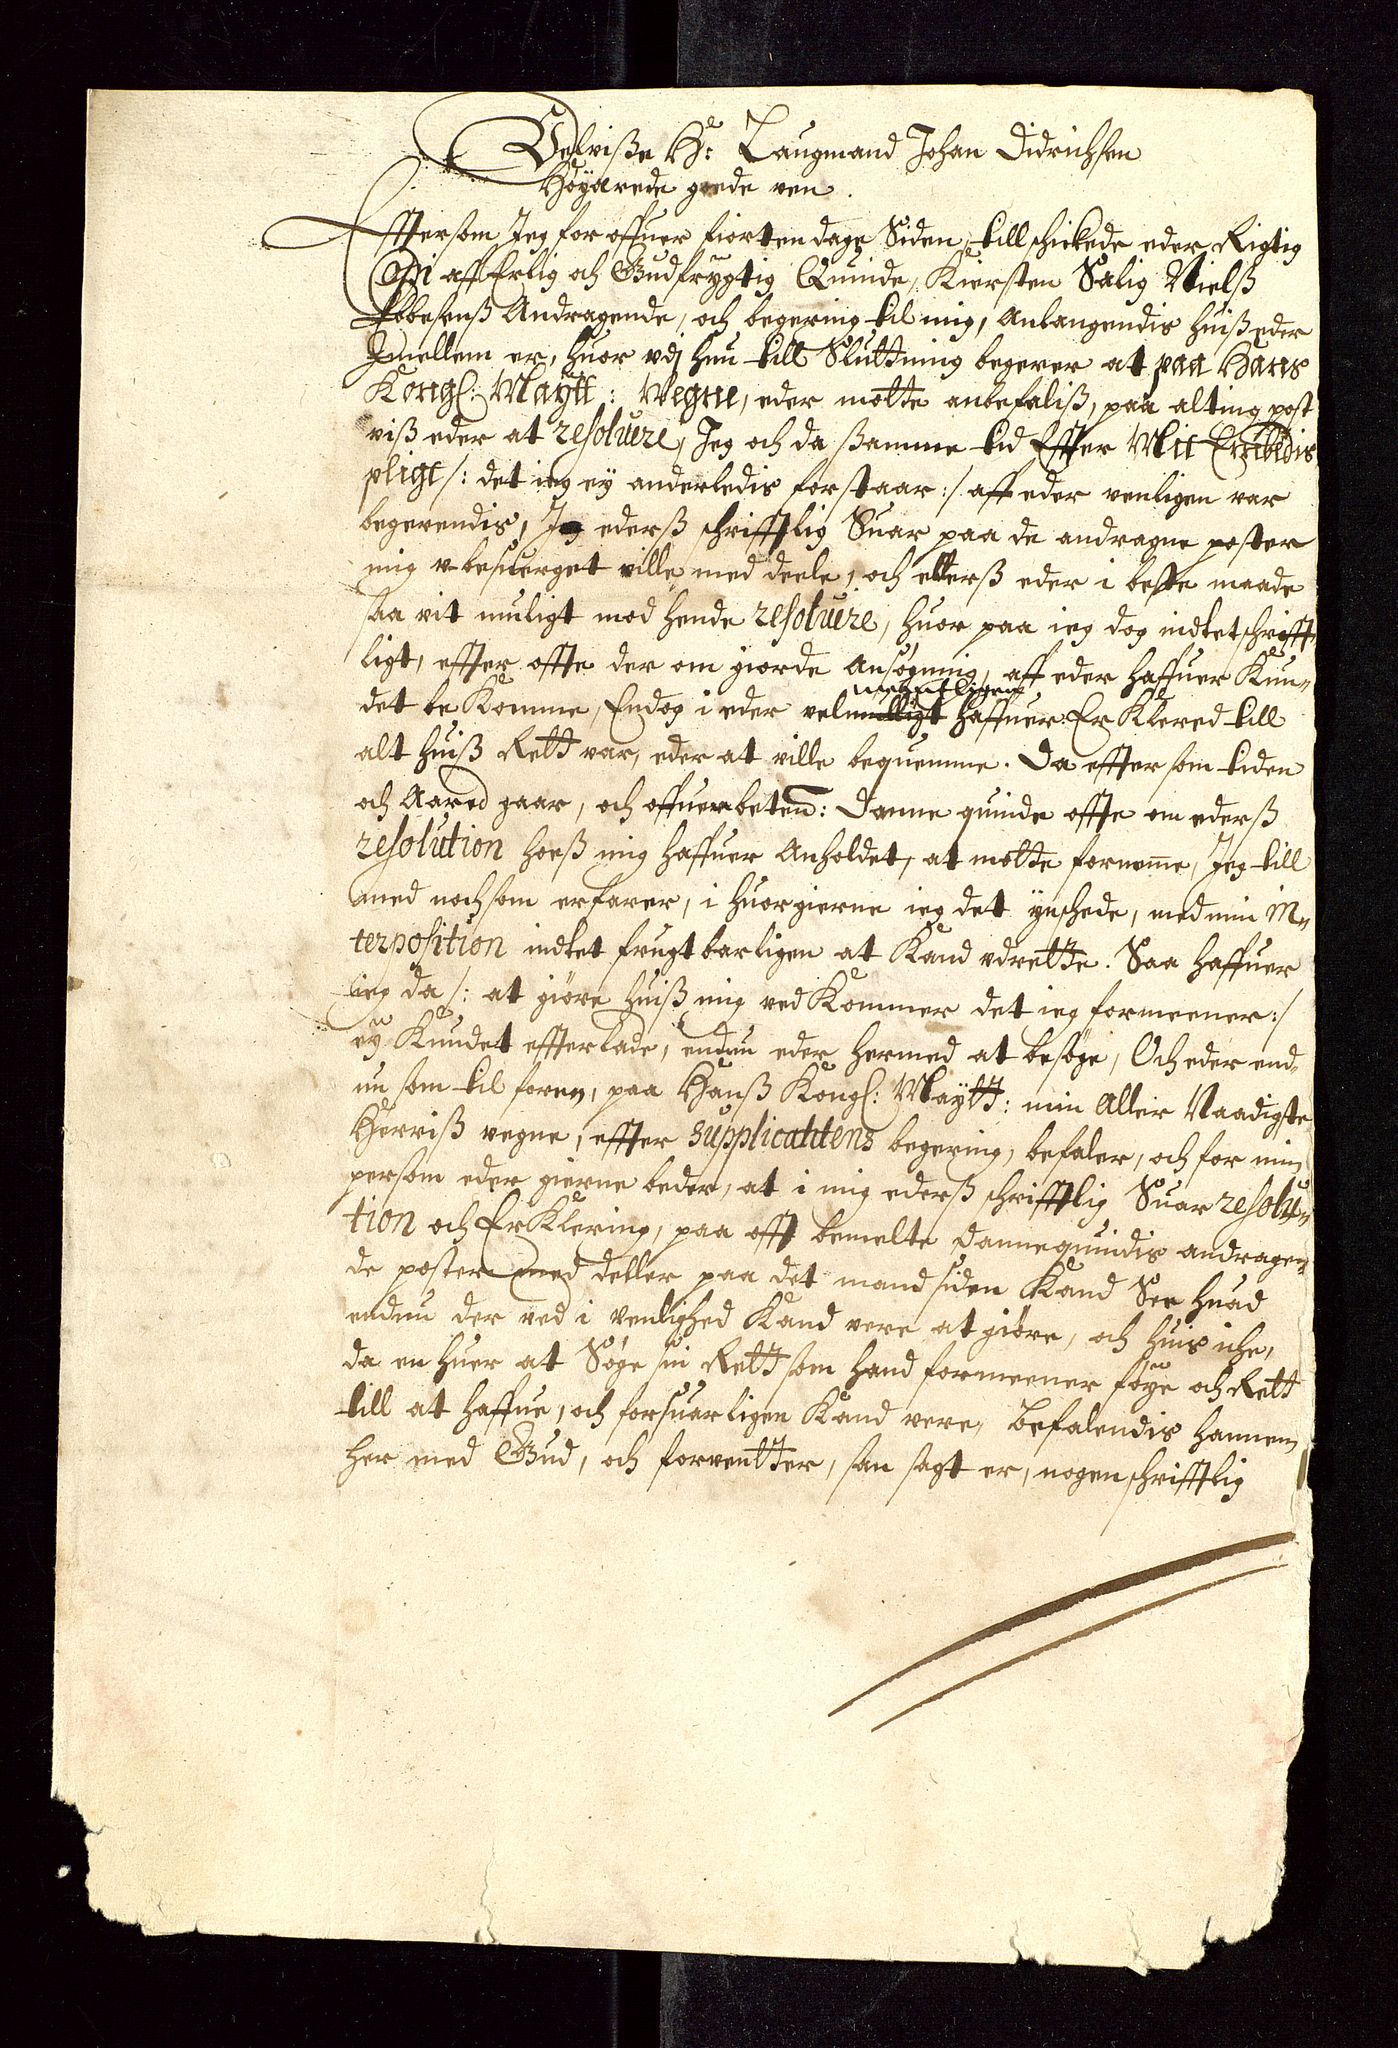 Velviße Hr: Laugmand Johan Didrichsen
Høyarede goede ven.
Effttersom Jeg for offuer fiorten dage Siden, tillschickede eder Rigtig
Copi aff Erlig och Gudfrygtig Quinde, Kiersten Salig Nielß
Ebbesenß Andragende, och begering til mig, Anlangendis huiß eder
Jmellem er, huor vdj hun till Sluttning begerer at paa Hans
Kongl: Maytt: Vegne, eder motte anbefaliß, paa alting post
viß eder at resoluere, Jeg och da ßamme tid Effter Mit Embedis
pligt /: det ieg ey anderledis forstaar :/ aff eder venligen var
begerendis, Jeg ederß schrifftlig Suar paa de andragne poster
mig v-besuerget ville med deele, och ellerß eder i beste maade
saa vit muligt mod hende resoluere, huor paa ieg dog indtet schrifft-
ligt, effter offte der om giorde Ansøgning, aff eder haffuer Kun-
det be Komme, Endog i eder vel mundtligen haffuer Er Klered till
alt huiß Rett var, eder at ville bequemme. Da efftersom tiden
och Aared gaar, och offuerbeten: Danne quinde offte om ederß
resolution hoeß mig haffuer Anholdet, at motte fornemme, Jeg till
med nochsom erfarer, i huor gierne ieg det ynschede, med min in-
terposition indtet frugtbarligen at Kand vdrette. Saa haffuer
ieg da /: at giøre huiß mig ved Kommer det ieg formeener :/
ey Kundet effterlade, endnu eder hermed at besøge, Och eder end-
nu som til foren, paa Hanß Kongl: Maytt: min Aller Naadigste
Herriß vegne, effter supplicantens begering, befaler, och for min
persom eder gierne beder, at i mig ederß schrifftlig Suar resolu-
tion och ErKlering, paa offt bemelte dannequindis andragen-
de poster med deller paa det mand siden Kand See huad
endnu der ved i venlighed Kand vere at giøre, och huis iche,
da en huer at Søge sin Rett som hand formeener føye och Rett
till at haffue, och forsuarligen Kand vere, befalendis hannem
her med Gud, och forventter, saa sagt er, nogen schrifftlig